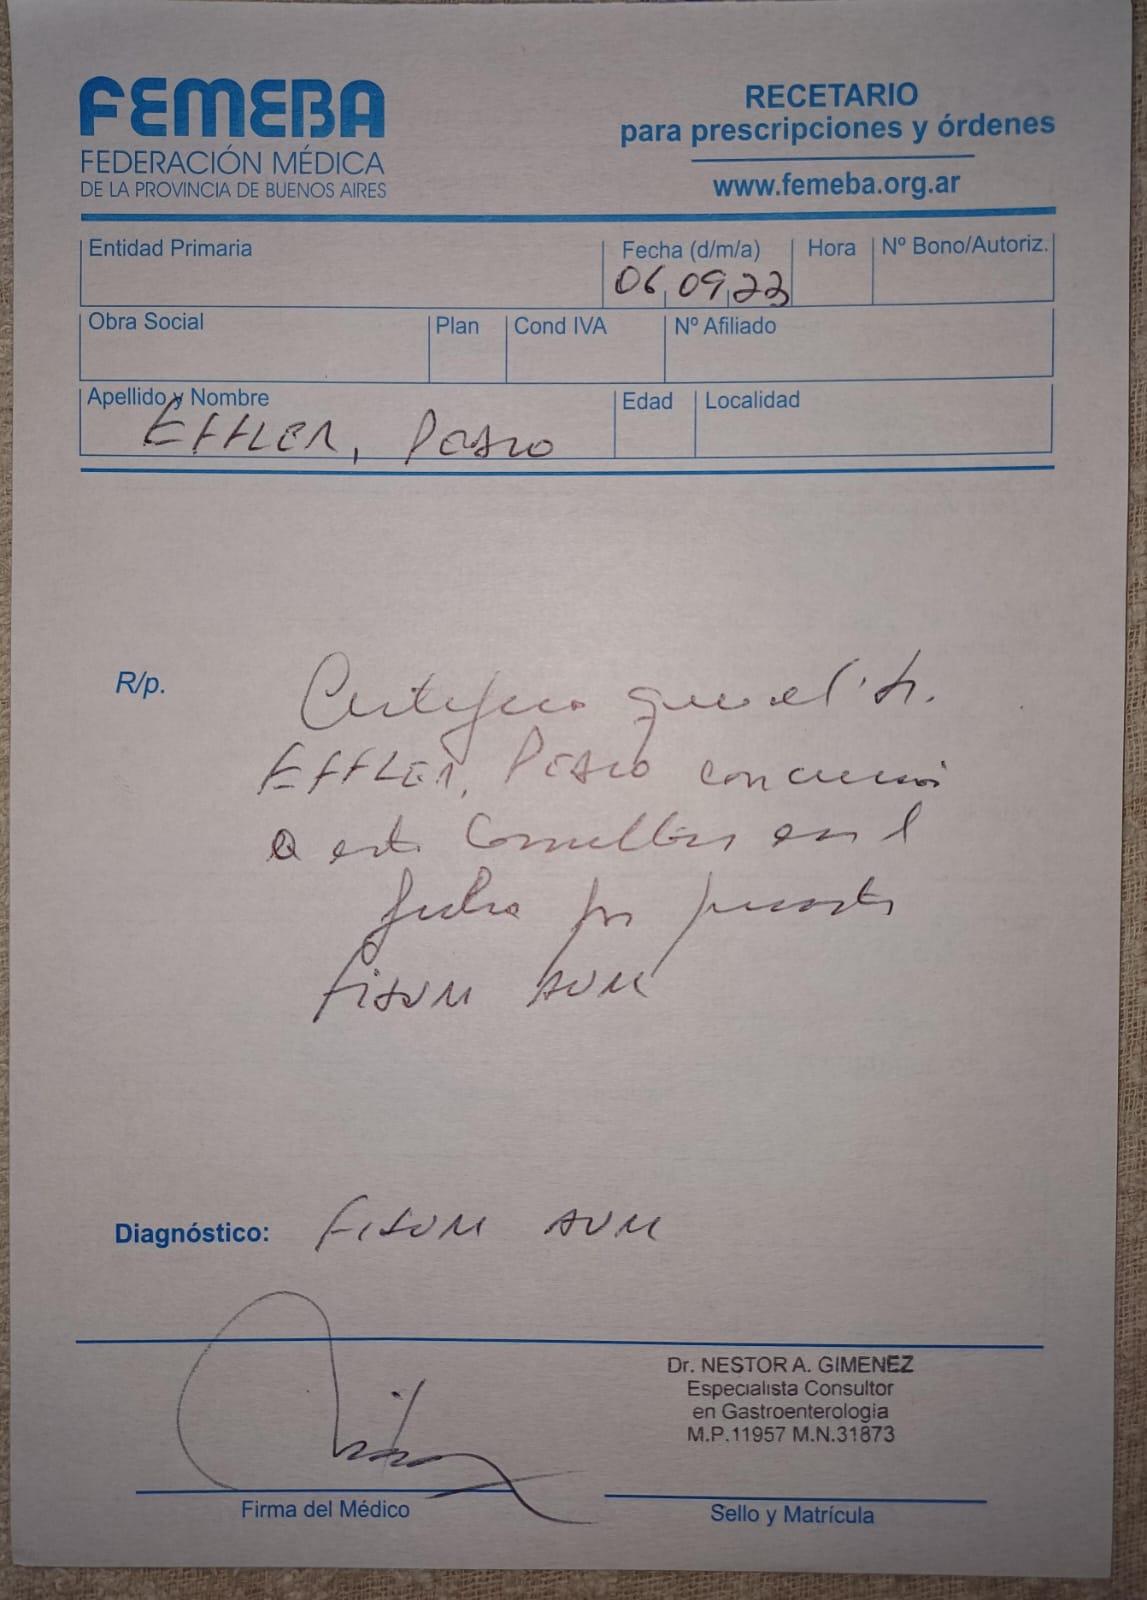 FEMEBA
FEDERACIÓN MÉDICA
DE LA PROVINCIA DE BUENOS AIRES
RECETARIO
para prescripciones y órdenes
www.femeba.org.ar
Entidad Primaria
Fecha (d/m/a)
06 09 23
Hora
Nº Bono/Autoriz.
Obra Social
Plan
Cond IVA
Nº Afiliado
Apellido y Nombre
EFFLER, PEDRO
Edad
Localidad
R/p.
Certifico que el Sr.
EFFLER, PEDRO concurrió
a este Consultorio en el
fecha por presentar
FISURA ANAL
Diagnóstico: FISURA ANAL
Dr. NESTOR A. GIMENEZ
Especialista Consultor
en Gastroenterologia
M.P.11957 M.N.31873
Firma del Médico
Sello y Matrícula